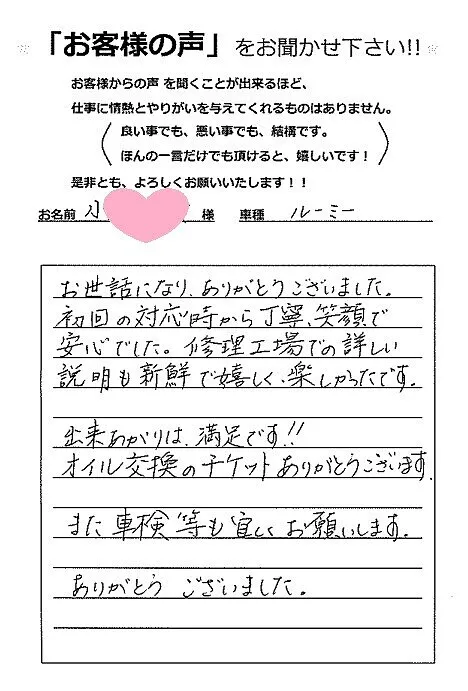 「お客様の声」をお聞かせ下さい!!
お客様からの声 を聞くことが出来るほど、
仕事に情熱とやりがいを与えてくれるものはありません。
良い事でも、悪い事でも、結構です。
ほんの一言だけでも頂けると、嬉しいです！
是非とも、よろしくお願いいたします！！
お名前 小 様 車種 ルーミー
お世話になり、ありがとうございました。
初回の対応時から丁寧、笑顔で
安心でした。修理工場での詳しい
説明も新鮮で嬉しく、楽しかったです。
出来あがりは、満足です!!
オイル交換のチケットありがとうございます
また車検等も宜しくお願いします。
ありがとう ございました。